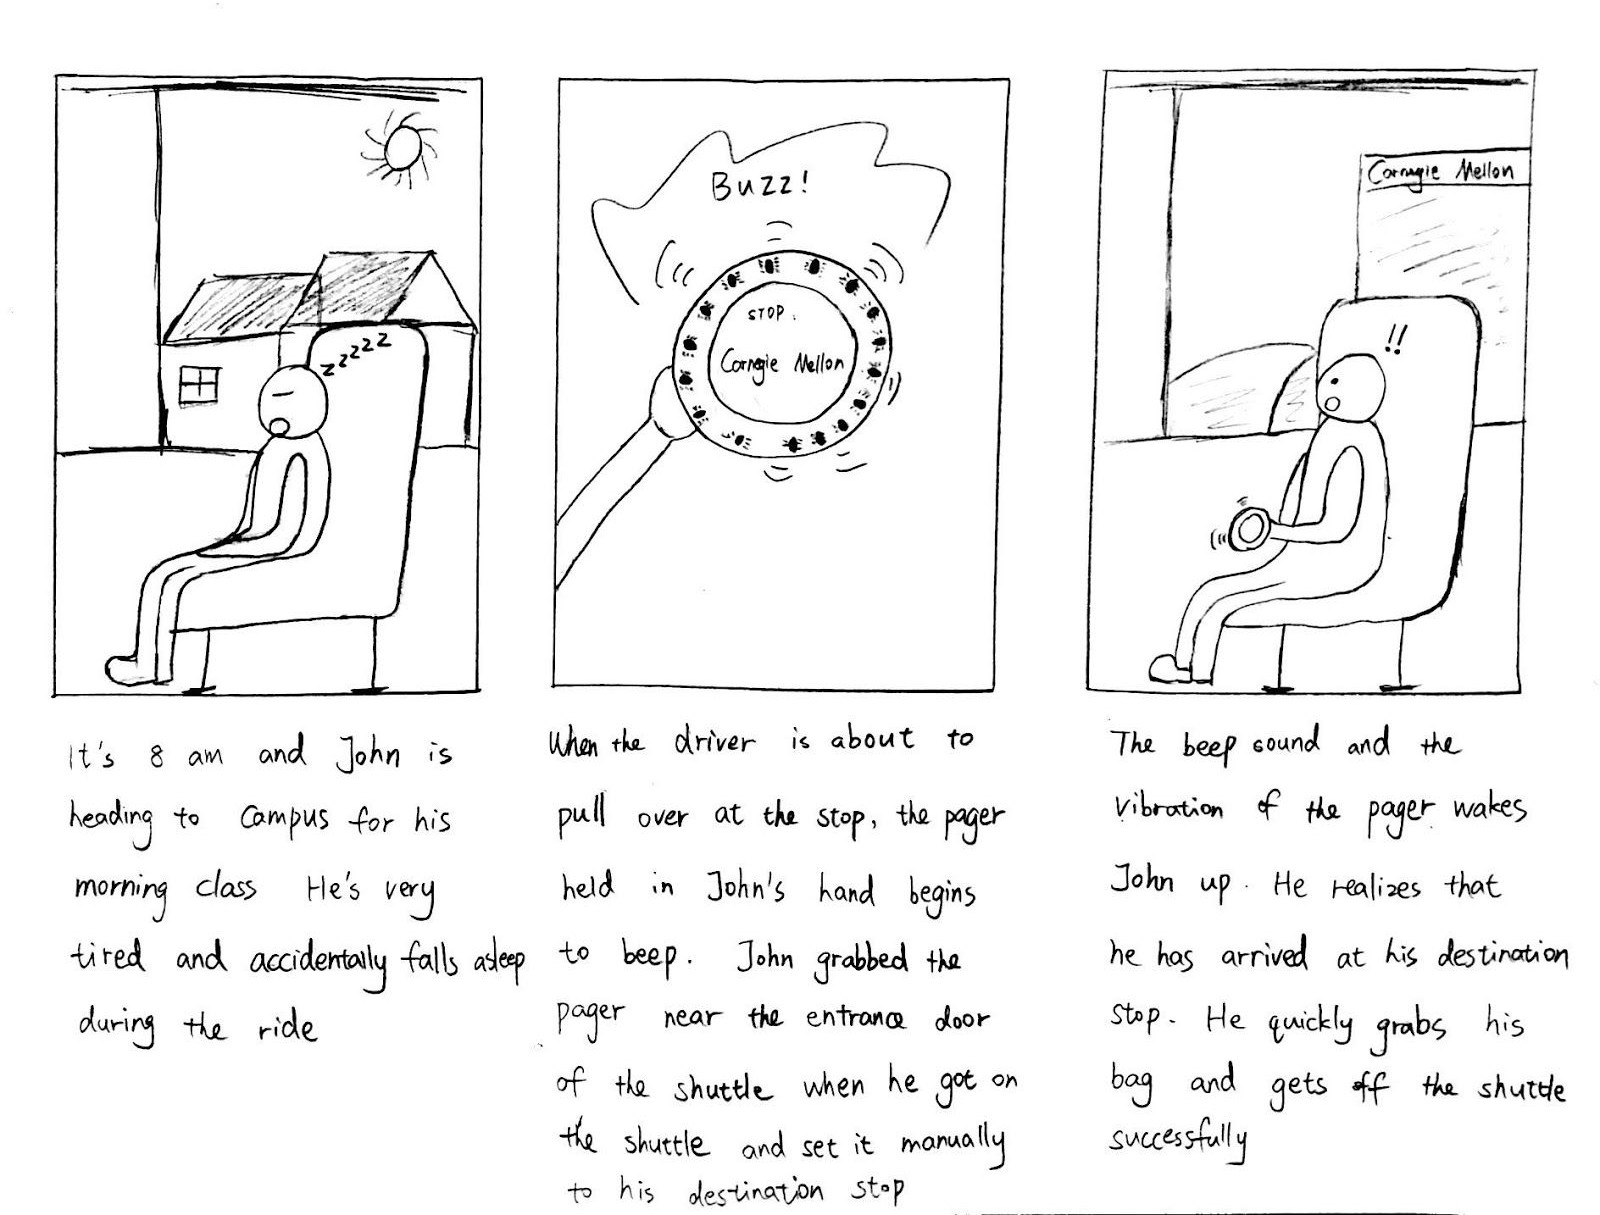 zzzzz
Buzz!
STOP.
Carnegie Mellon
Carnegie Mellon
!!
It's 8 am and John is
heading to campus for his
morning class He's very
tired and accidentally falls asleep
during the ride
When the driver is about to
pull over at the stop, the pager
held in John's hand begins
to beep. John grabbed the
pager near the entrance door
of the shuttle when he got on
the shuttle and set it manually
to his destination stop
The beep sound and the
vibration of the pager wakes
John up. He realizes that
he has arrived at his destination
stop. He quickly grabs his
bag and gets off the shuttle
successfully